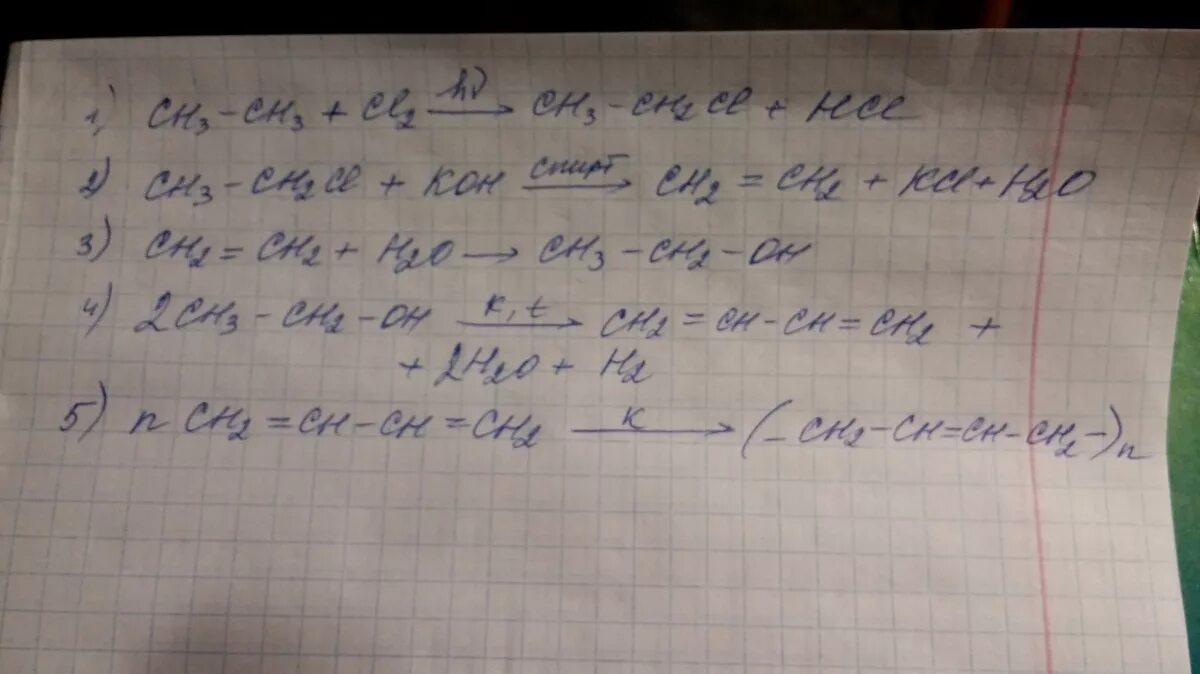 1) CH₃-CH₃ + Cl₂ hν→ CH₃-CH₂Cl + HCl
2) CH₃-CH₂Cl + KOH спирт→ CH₂=CH₂ + KCl+H₂O
3) CH₂=CH₂ + H₂O → CH₃-CH₂-OH
4) 2CH₃-CH₂-OH к, t→ CH₂=CH-CH=CH₂ +
+ 2H₂O + H₂
5) n CH₂=CH-CH=CH₂ к→ (-CH₂-CH=CH-CH₂-)n